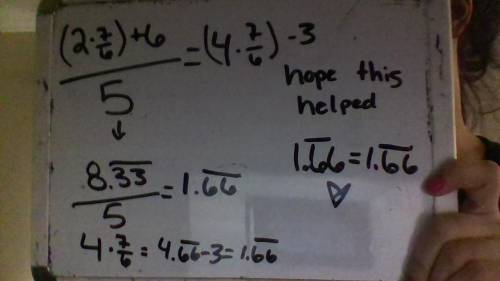 (2·7/6)+6 / 5 = (4·7/6) -3
hope this
helped
↓
8.3̅3̅ / 5 = 1.6̅6̅
1.6̅6 = 1.6̅6̅
♡
4·7/6 = 4.6̅6̅-3=1.6̅6̅